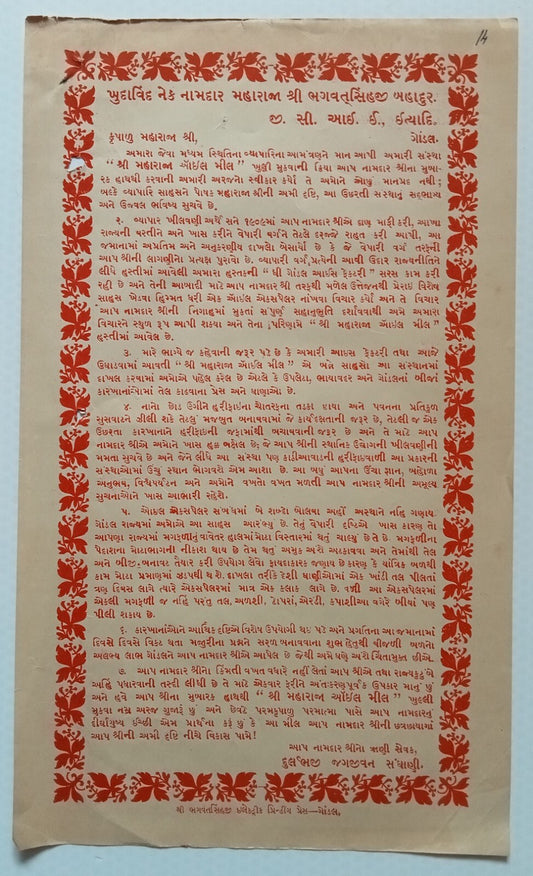 14
ખુદાવિંદ નેક નામદાર મહારાજા શ્રી ભગવતસિંહજી બહાદુર.
જી. સી. આઈ. ઈ., ઈત્યાદિ.
કૃપાળુ મહારાજા શ્રી, ગોંડલ.
અમારા જેવા મધ્યમ સ્થિતિના વ્યાપારિના આમંત્રણને માન આપી અમારી સંસ્થા
“ શ્રી મહારાજા ઑઇલ મીલ ” ખુલ્લી મુકવાની ક્રિયા આપ નામદાર શ્રીના મુબા-
રક હાથથી કરવાની અમારી અરજનો સ્વીકાર કર્યો તે અમોને ઓછું માનપ્રદ નથી;
બલ્કે વ્યાપારિ સાહસને પોષક મહારાજા શ્રીની અમી દૃષ્ટિ, આ ઉછરતી સંસ્થાનું સદ્ભાગ્ય
અને ઉજ્વલ ભવિષ્ય સુચવે છે.
૨. વ્યાપાર ખીલવણી અર્થે સને ૧૯૦૯માં આપ નામદાર શ્રીએ દાણ માફી કરી, આખા
રાજ્યની વસ્તીને અને ખાસ કરીને વેપારી વર્ગને તેટલે દરજ્જે રાહત કરી આપી, આ
જમાનામાં અપ્રતિમ અને અનુકરણીય દાખલો બેસાર્યો છે કે જે વેપારી વર્ગ તરફની
આપ શ્રીની લાગણીનો પ્રત્યક્ષ પુરાવો છે. વ્યાપારી વર્ગ પ્રત્યેની આવી ઉદાર રાજ્યનીતિને
લીધે હસ્તીમાં આવેલી અમારા હસ્તકની “ ધી ગોંડલ આઇસ ફેક્ટરી ” સરસ કામ કરી
રહી છે અને તેની આબાદી માટે આપ નામદાર શ્રી તરફથી મળેલ ઉત્તેજનથી પ્રેરાઇ વિશેષ
સાહસ ખેડવા હિમ્મત ધરી એક ઑઇલ એક્સપેલર નાંખવા વિચાર કર્યો અને તે વિચાર
આપ નામદાર શ્રીની નિગાહમાં મુકતાં સંપૂર્ણ સહાનુભૂતિ દર્શાવવાથી અમે અમારા
વિચારને સ્થુળ રૂપ આપી શક્યા અને તેના પરિણામે “ શ્રી મહારાજા ઑઇલ મીલ ”
હસ્તીમાં આવેલ છે.
૩. મારે ભાગ્યે જ કહેવાની જરૂર પડે છે કે અમારી આઇસ ફેક્ટરી તથા આજે
ઉઘાડવામાં આવતી “ શ્રી મહારાજા ઑઇલ મીલ ” એ બન્ને સાહસો આ સંસ્થાનમાં
દાખલ કરવામાં અમોએ પહેલ કરેલ છે એટલે કે ઉપલેટા, ભાયાવદર અને ગોંડલનાં બીજાં
કારખાનાંઓમાં તેલ કાઢવાના પ્રેસ અને ઘાણીઓ છે.
૪. નાનો છોડ ઉગીને હરીફાઇના ચાતરફના તડકા છાયા અને પવનના પ્રતિકુળ
સુસવાટને ઝીલી શકે તેટલું મજબુત બનાવવામાં જે કાર્યદક્ષતાની જરૂર છે, તેટલી જ એક
ઉછરતા કારખાનાને હરીફાઇની જફામાંથી બચાવવાની જરૂર છે અને તે માટે આપ
નામદાર શ્રીએ અમોને ખાસ હક્ક બક્ષેલ છે; જે આપ શ્રીની સ્થાનિક ઉદ્યોગની ખીલવણીની
મમતા સુચવે છે અને જેને લીધે આ સંસ્થા પણ કાઠીઆવાડની હરીફાઇવાળી આ પ્રકારની
સંસ્થાઓમાં ઉચું સ્થાન ભોગવશે એમ આશા છે. આ બધું આપના ઉંચા જ્ઞાન, બહોળા
અનુભવ, વિશ્વપર્યટન અને અમોને વખતો વખત મળતી આપ નામદાર શ્રીની અમૂલ્ય
સુચનાઓને ખાસ આભારી રહેશે.
૫. ઑઇલ એક્સપેલર સંબંધમાં બે શબ્દો બોલવા અહીં અસ્થાને નહિ ગણાય
ગોંડલ રાજ્યમાં અમોએ આ સાહસ આરંભ્યું છે. તેનું વેપારી દૃષ્ટિએ ખાસ કારણ તો
આપણા રાજ્યમાં મગફળીનું વાવેતર હાલમાં મોટા વિસ્તારમાં થતું ચાલ્યું છે તે છે. મગફળીના
પેદાશના મોટાભાગની નીકાશ થાય છે તેમ થતું અમુક અંશે અટકાવવા અને તેમાંથી તેલ
અને બીજી બનાવટ તૈયાર કરી ઉપયોગ લેવો ફાયદાકારક જણાય છે કારણ કે યાંત્રિક બળથી
કામ મોટા પ્રમાણમાં ઝડપથી થશે. દાખલા તરીકે દેશી ઘાણીઓમાં એક ખાંડી તલ પીલતાં
ત્રણ દિવસ લાગે ત્યારે એક્સપેલરમાં માત્ર એક કલાક લાગે છે. વળી આ એક્સપેલરમાં
એકલી મગફળી જ નહિં પરંતુ તલ, અળશી, ટોપરાં, એરંડી, કપાશીઆ વગેરે બીયાં પણ
પીલી શકાય છે.
૬. કારખાનાંઓને આર્થિક દૃષ્ટિએ વિશેષ ઉપયોગી થઇ પડે અને પ્રગતિના આ જમાનામાં
દિવસે દિવસે વિકટ થતા મજુરીના પ્રશ્નને સરળ બનાવવાના શુભ હેતુથી વીજળી બળનો
અલભ્ય લાભ ગોંડલને આપ નામદાર શ્રીએ આપેલ છે જેથી અમે પણ અંશે ચિંતામુક્ત છીએ.
૭. આપ નામદાર શ્રીનો કિંમતી વખત વધારે નહીં લેતાં આપ શ્રીએ તથા રાજ્યકુટુંબે
અહિં પધારવાની તસ્દી લીધી છે તે માટે એકવાર ફરીને અંતઃકરણપૂર્વક ઉપકાર માનું છું
અને હવે આપ શ્રીના મુબારક હાથથી “ શ્રી મહારાજા ઑઇલ મીલ ” ખુલ્લી
મુકવા નમ્ર અરજ ગુજારૂં છું અને છેવટ પરમકૃપાળુ પરમાત્મા પાસે આપ નામદારનું
દીર્ઘાયુષ્ય ઇચ્છી એમ પ્રાર્થના કરૂં છું કે આ મીલ આપ નામદાર શ્રીની છત્રછાયામાં
આપ શ્રીની અમી દૃષ્ટિ નીચે વિકાસ પામે!
આપ નામદાર શ્રીનો ઋણી સેવક,
દુર્લભજી જગજીવન સંઘાણી.
શ્રી ભગવતસિંહજી ઇલેક્ટ્રીક પ્રિન્ટીંગ પ્રેસ—ગોંડલ.